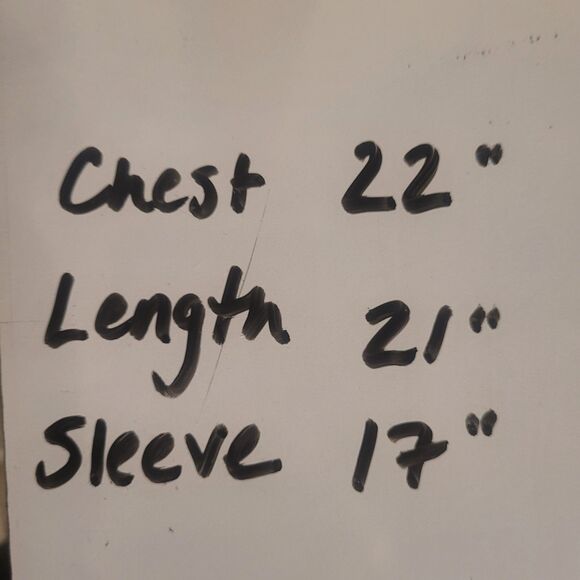 Chest 22"
Length 21"
Sleeve 17"